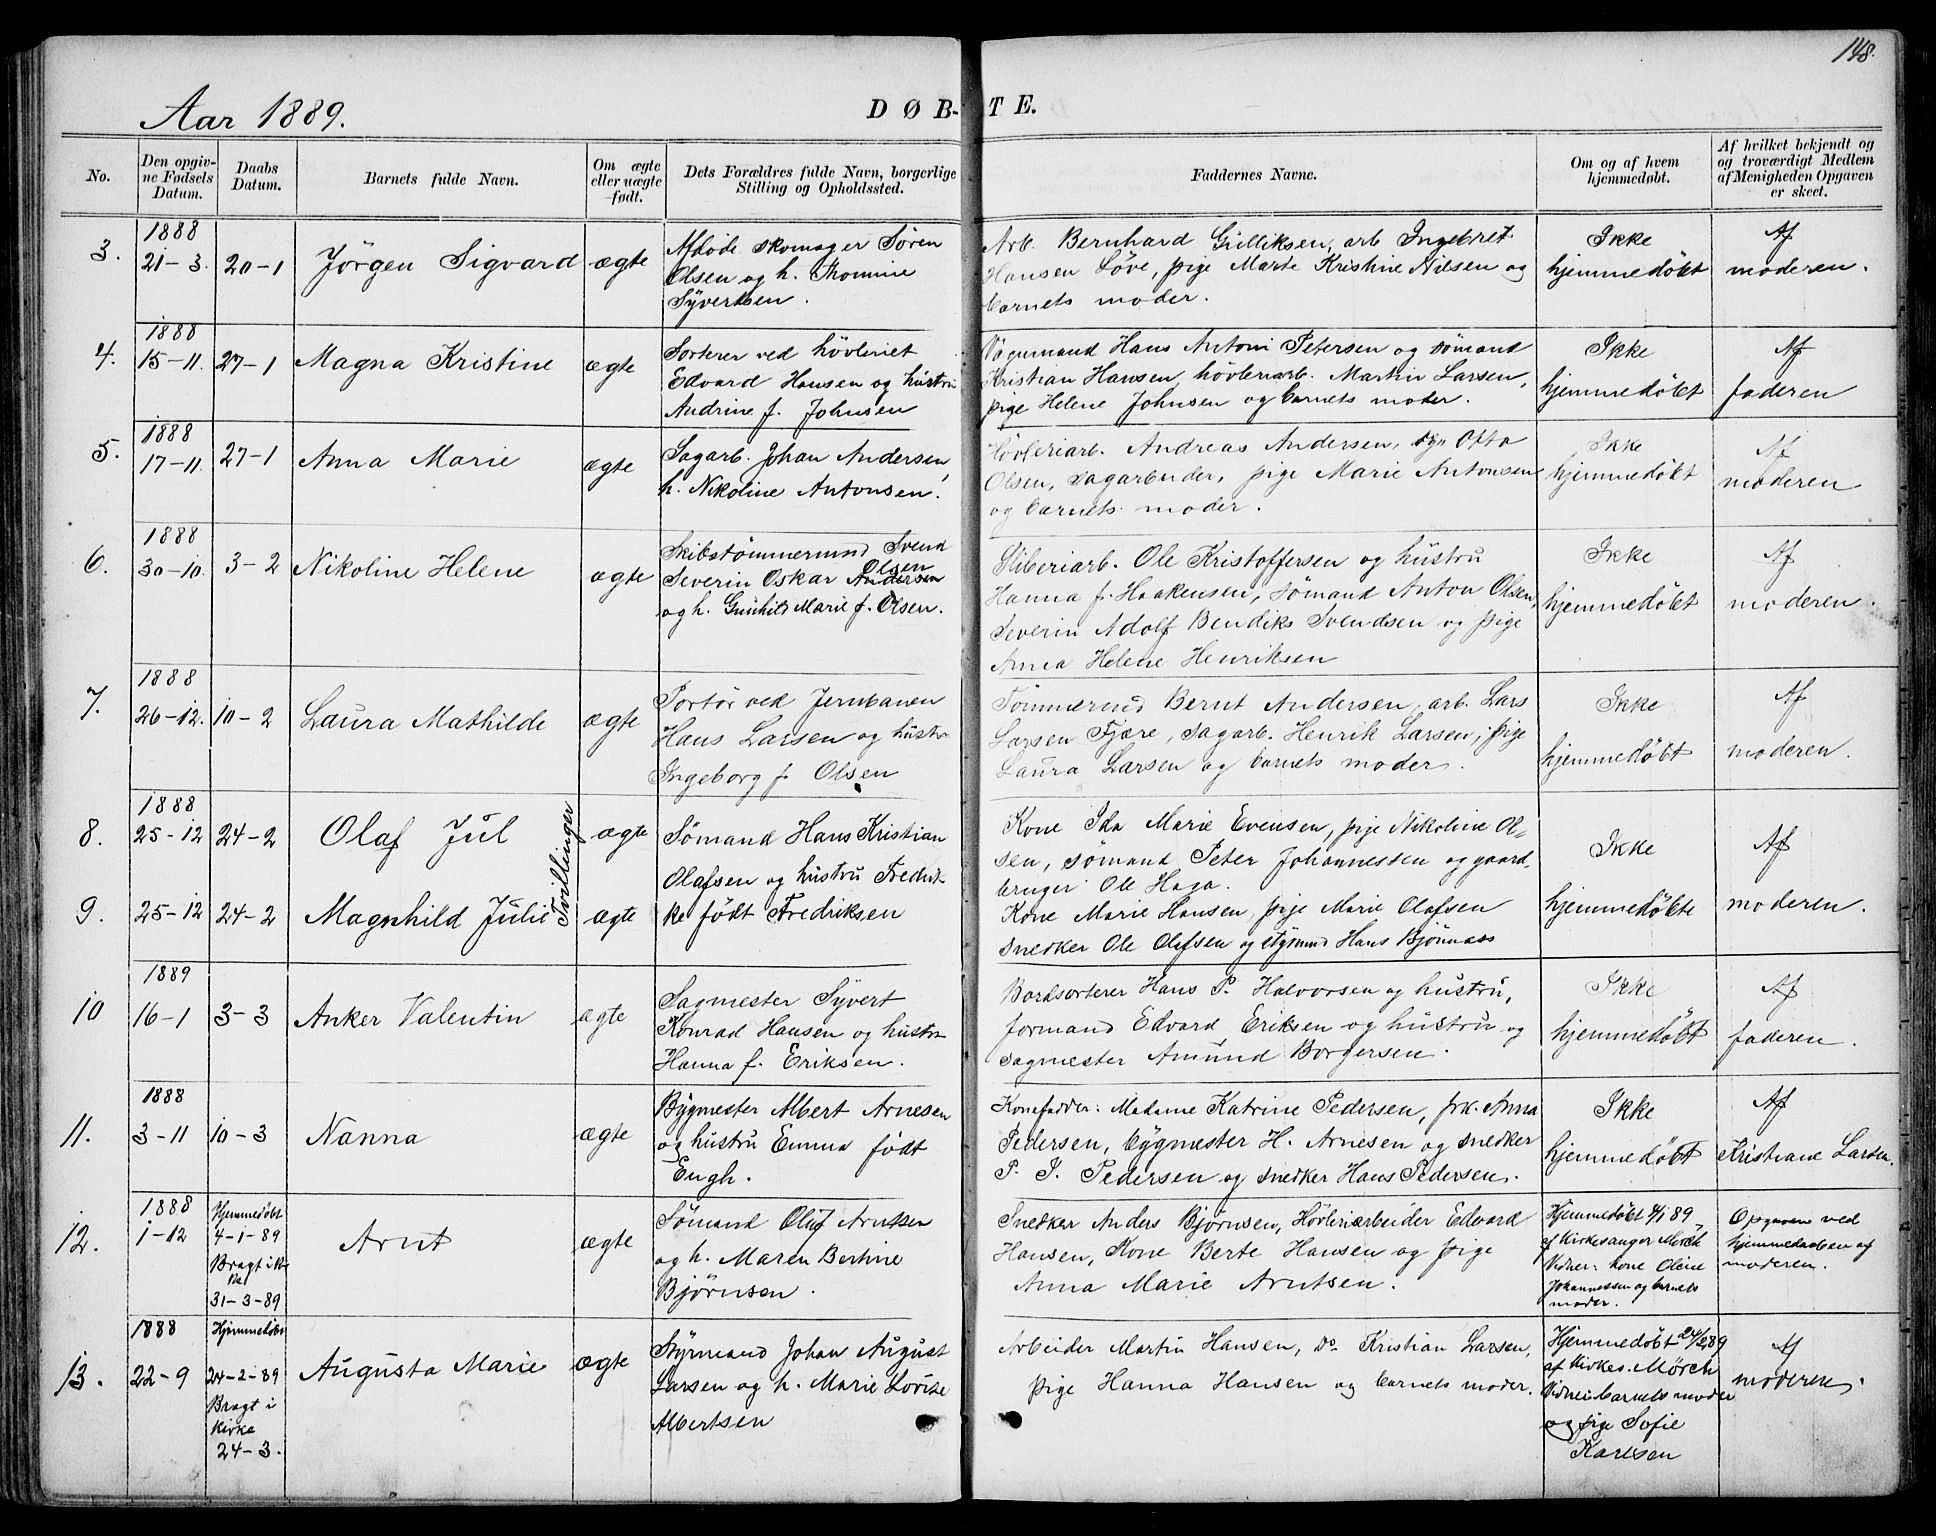 148.
Aar 1889.
DØB-TE.
No.
Den opgiv-
ne Fødsels
Datum.
Daabs
Datum.
Barnets fulde Navn.
Om ægte
eller uægte
født.
Dets Forældres fulde Navn, borgerlige
Stilling og Opholdssted.
Faddernes Navne.
Om og af hvem
hjemmedøbt.
Af hvilket bekjendt og
og troværdigt Medlem
af Menigheden Opgaven
er skeet.
3.
1888
21-3.
20-1
Jörgen Sigvard
ægte
Afdöde skomager Sören
Olsen og h. Thomine
Syvertsen.
Arb. Bernhard Gulliksen, arb Ingebret
Hansen Löve, pige Marte Kristine Nilsen og
barnets moder.
Ikke
hjemmedöbt
Af
moderen.
4.
1888
15-11.
27-1
Magna Kristine
ægte
Sorterer ved hövleriet
Edvard Hansen og hustru
Andrine f. Johnsen
Vognmand Hans Antoni Petersen og sömand
Kristian Hansen, hövleriarb. Martin Larsen,
pige Helene Johnsen og barnets moder.
Ikke
hjemmedöbt
Af
faderen
5.
1888
17-11.
27-1
Anna Marie
ægte
Sagarb. Johan Andersen,
h. Nikoline Antonsen.
Hövleriarb. Andreas Andersen, Otto
Olsen, sagarbeider, pige Marie Antonsen
og barnets moder.
Ikke
hjemmedöbt
Af
moderen
6.
1888
30-10.
3-2
Nikoline Helene
ægte
Skibstömmermnd Svend
Olsen
Severin Oskar Andersen
og h. Gunhild Marie f. Olsen.
Sliberiarb. Ole Kristoffersen og hustru
Hanna f. Haakensen, sömand Anton Olsen,
Severin Adolf Bendiks Svendsen og pige
Anna Helene Henriksen
Ikke
hjemmedöbt
Af
moderen.
7.
1888
26-12.
10-2
Laura Mathilde
ægte
Portör ved Jernbanen
Hans Larsen og hustru
Ingeborg f. Olsen
Tömmermnd Bernt Andersen, arb. Lars
Larsen Fjære, sagarb. Henrik Larsen, pige
Laura Larsen og barnets moder.
Ikke
hjemmedöbt
Af
moderen.
8.
1888
25-12
24-2
Olaf Jul
Tvillinger
ægte
Sömand Hans Kristian
Olafsen og hustru Fredrik-
Kone Ida Marie Evensen, pige Nikoline Ol-
sen, sömand Peter Johannessen og gaard-
bruger Ole Haga.
Ikke
Af
9.
25-12
24-2
Magnhild Julie
ægte
ke födt Fredriksen
Kone Marie Hansen, pige Marie Olafsen
snedker Ole Olafsen og styrmnd Hans Björnaas
hjemmedöbte
moderen.
10
1889
16-1
3-3
Anker Valentin
ægte
Sagmester Syvert
Konrad Hansen og hustru
Hanna f. Eriksen.
Bordsorterer Hans P. Halvorsen og hustru,
formand Edvard Eriksen og hustru og
sagmester Amund Borgersen.
Ikke
hjemmedöbt
Af
faderen.
11.
1888
3-11
10-3
Nanna
ægte
Bygmester Albert Arnesen
og hustru Emma födt
Engh.
Konefadder: Madame Katrine Pedersen, frk. Anna
Pedersen, bygmester H. Arnesen og snedker
P. I. Pedersen og snedker Hans Pedersen.
Ikke
hjemmedöbt
Af
Kristiane Larsen.
12.
1888
1-12
Hjemmedöbt
4-1-89
Bragt i kir
ke
31-3-89
Arnt
ægte
Sömand Oluf Arntsen
og h. Maren Bertine
Björnsen.
Snedker Anders Björnsen, Hövleriarbeider Edvard
Hansen, Kone Berte Hansen og pige
Anna Marie Arntsen.
Hjemmedöbt 4/1 89
af Kirkesanger Mörch
Vidner: kone Oleine
Johannessen og barnets
moder.
Opgaven ved
hjemmedaaben af
moderen.
13.
1888
22-9
Hjemmedöbt
24-2-89
Bragt i
kirke
24-3.
Augusta Marie
ægte
Styrmand Johan August
Larsen og h. Marie Lovise
Albertsen
Arbeider Martin Hansen, Do Kristian Larsen,
pige Hanna Hansen og barnets moder.
Hjemmedöbt 24/2 89
af Kirkes. Mörch
Vidner: barnets moder
og pige Sofie
Karlsen
Af
moderen.